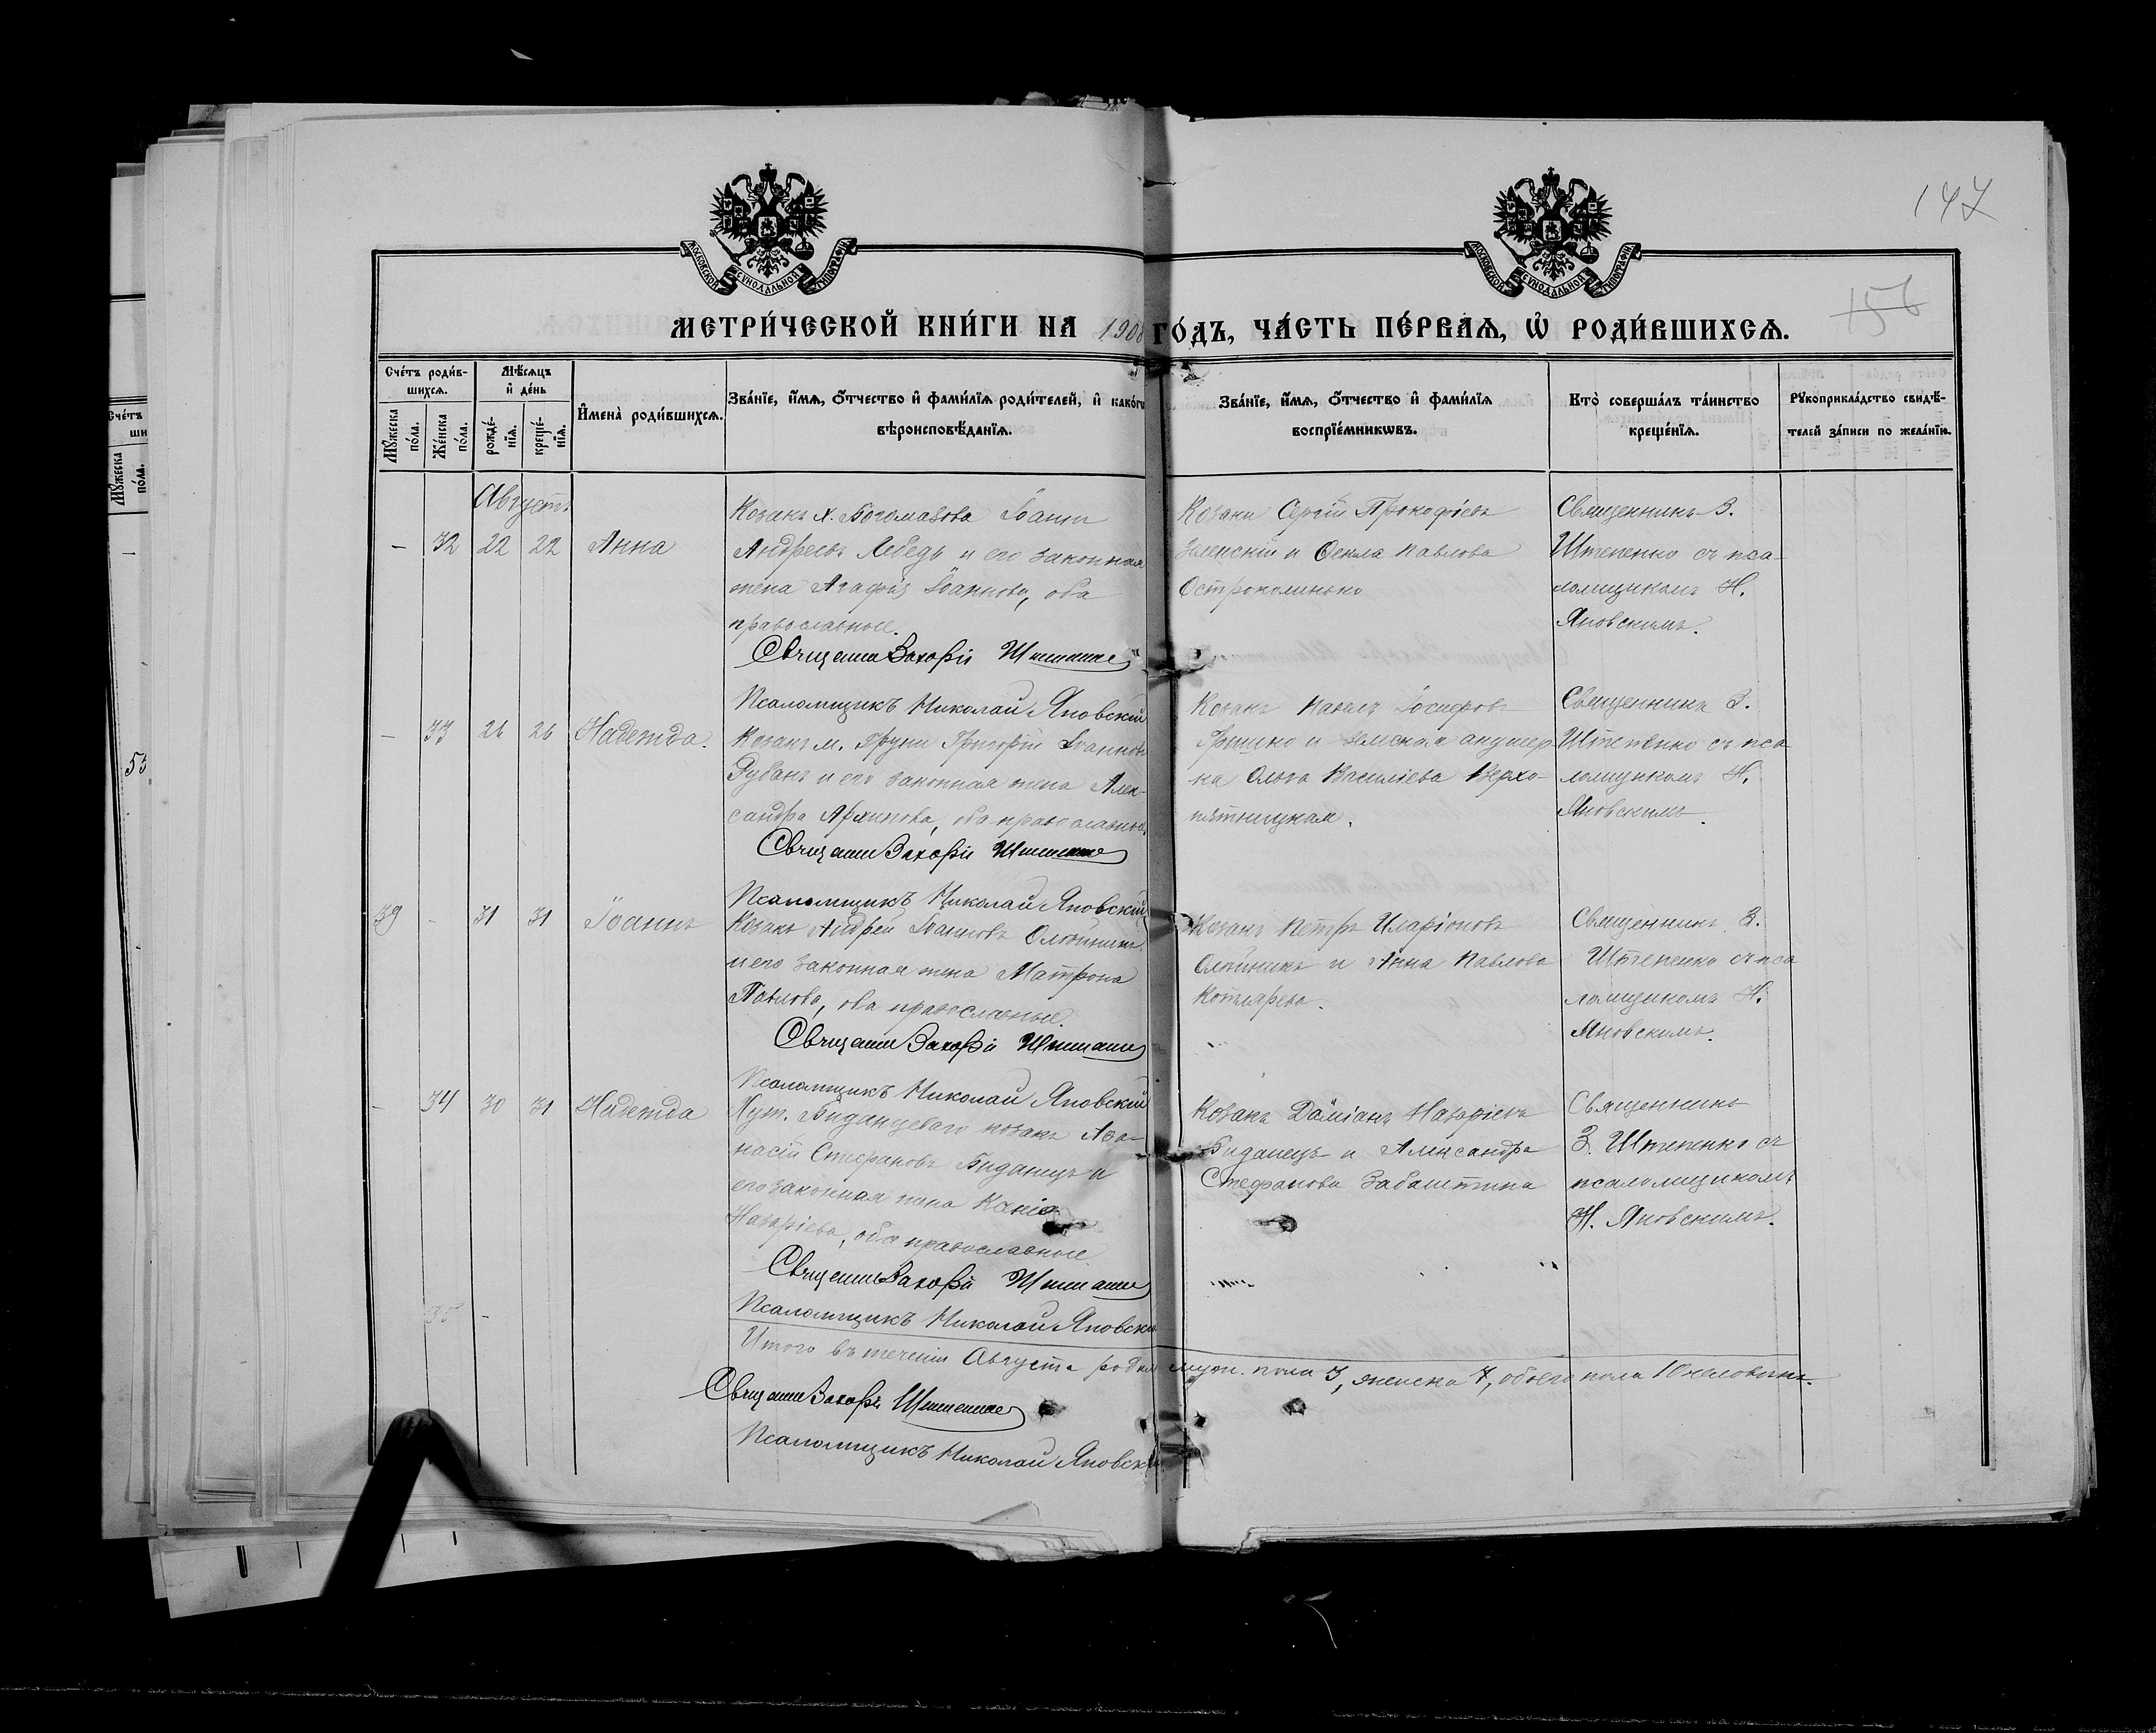 147
156
МОСКОВСКОЙ СѴНОДАЛЬНОЙ ТИПОГРАФІИ
МОСКОВСКОЙ СѴНОДАЛЬНОЙ ТИПОГРАФІИ
МЕТРИ́ЧЕСКОЙ КНИ́ГИ НА 1908 ГО́ДЪ, ЧА́СТЬ ПЕ́РВАѦ, Ѡ҆ РОДИ́ВШИХСѦ.
Сче́тъ роди́в-
шихсѧ.
Мꙋ́жеска по́ла.
Же́нска по́ла.
Мѣ́сѧцъ
и҆ де́нь
рожде́-
нїѧ.
креще́-
нїѧ.
И҆мена̀ роди́вшихсѧ.
Зва́нїе, и҆́мѧ, ѻ҆́тчество и҆ фами́лїѧ роди́телей, и҆ како́гѡ
вѣроисповѣ́данїѧ.
Зва́нїе, и҆́мѧ, ѻ҆́тчество и҆ фами́лїѧ
воспрїе́мникѡвъ.
Кто̀ соверша́лъ та́инство
креще́нїѧ.
Рꙋкоприкла́дство свидѣ́-
телей за́писи по жела́нїю.
Августъ
- 32 22 22 Анна
Козакъ х. Богомазова Іоаннъ
Андреевъ Лебедь и его законная
жена Агафія Іоаннова, оба
православные.
Священникъ Захарій Штепенко
Псаломщикъ Николай Яновскій
Козаки Сергій Прокофіевъ
и Ѳекла Павлова
Священникъ З.
Штепенко съ пса-
ломщикомъ Н.
Яновскимъ.
- 33 26 26 Надежда.
Козакъ м. Груни Григорій Іоанновъ
Рубанъ и его законная жена Алек-
сандра Архипова, оба православные.
Священникъ Захарій Штепенко
Псаломщикъ Николай Яновскій
Козакъ Павелъ Іосифовъ
Гришко и земская акушер-
ка Ольга Василіева Верхо-
пятницкая.
Священникъ З.
Штепенко съ пса-
ломщикомъ Н.
Яновскимъ.
39 - 31 31 Іоаннъ
Козакъ Андрей Іоанновъ Олойникъ
и его законная жена Матрона
Павлова, оба православные.
Священникъ Захарій Штепенко
Псаломщикъ Николай Яновскій
Козакъ Петръ Иларіоновъ
Олойникъ и Анна Павлова
Котлярева.
Священникъ З.
Штепенко съ пса
ломщикомъ Н.
Яновскимъ.
- 34 30 31 Надежда
Хут. Биданцеваго козакъ Аѳа-
насій Стефановъ Биданецъ и
его законная жена Ксенія
Назаріева, оба православные
Священникъ Захарій Штепенко
Псаломщикъ Николай Яновскій
Козакъ Даміанъ Назаріевъ
Биданецъ и Александра
Стефанова Забаштина
Священникъ
З. Штепенко съ
псаломщикомъ
Н. Яновскимъ.
35 -
Итого въ теченіи Августа родил муж. пола 3, женска 7, обоего пола 10 человѣкъ.
Священникъ Захарій Штепенко
Псаломщикъ Николай Яновскій
Сче́тъ
ши
Мꙋ́жеска по́ла.
-
53